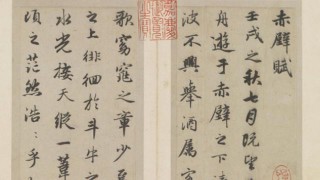 赤壁賦
壬戌之秋七月既望
舟遊于赤壁之下
波不興舉酒属客
歌窈窕之章少焉
之上徘徊於斗牛之
水光接天縱一葦
頃之茫然浩〻乎